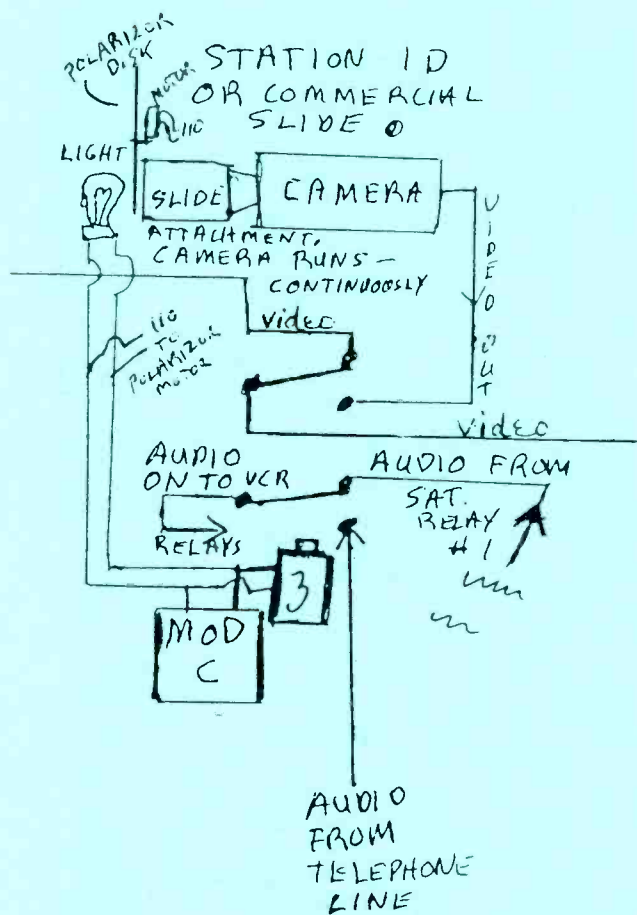 POLARIZOR
DISK
MOTOR
110
STATION ID
OR COMMERCIAL
SLIDE
LIGHT
SLIDE
CAMERA
ATTACHMENT.
CAMERA RUNS —
CONTINUOUSLY
VIDEO OUT
Video
110
TO
POLARIZOR
MOTOR
Video
AUDIO
ON TO VCR
AUDIO FROM
SAT.
RELAY
#1
RELAYS
3
MOD
C
AUDIO
FROM
TELEPHONE
LINE